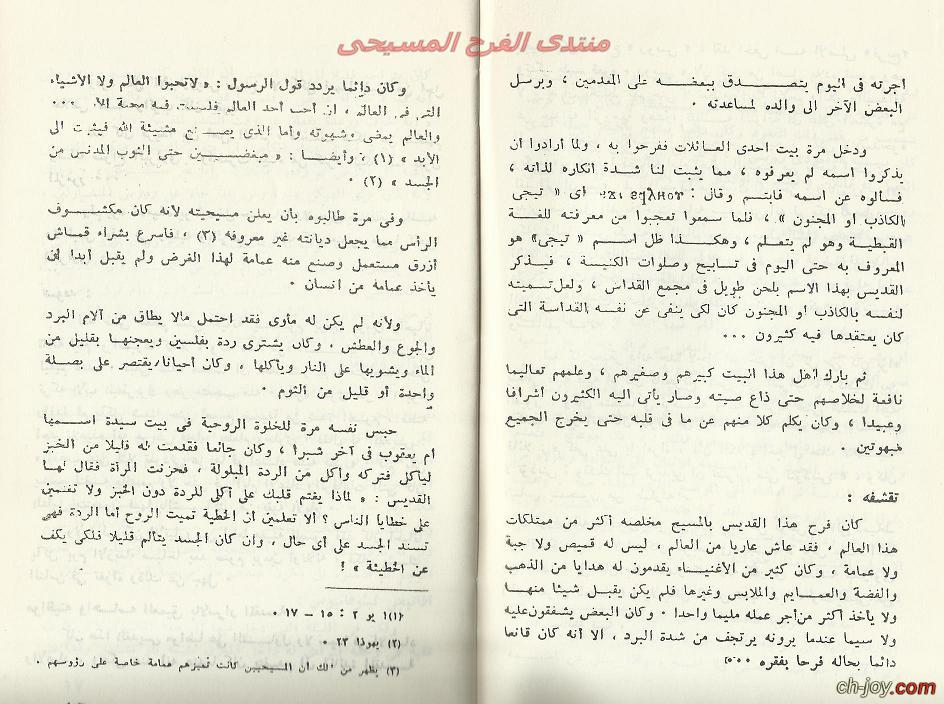 منتدى الفرح المسيحى
أجرته فى اليوم يتصدق ببعضه على المعدمين ، ويرسل
البعض الآخر الى والده لمساعدته ·
ودخل مرة بيت احدى العائلات ففرحوا به ، ولما أرادوا أن
يذكروا اسمه لم يعرفوه ، مما يثبت لنا شدة انكاره لذاته ،
فسألوه عن اسمه فابتسم وقال : أى « تيجى
الكاذب أو المجنون » ، فلما سمعوا تعجبوا من معرفته للغة
القبطية وهو لم يتعلم ، وهكذا ظل اسم « تيجى» هو
المعروف به حتى اليوم فى تسابيح وصلوات الكنيسة ، فيذكر
القديس بهذا الاسم بلحن طويل فى مجمع القداس ، ولعل تسميته
لنفسه بالكاذب أو المجنون كان لكى ينفى عن نفسه القداسة التى
كان يعتقدها فيه كثيرون ···
ثم بارك أهل هذا البيت كبيرهم وصغيرهم ، وعلمهم تعاليما
نافعة لخلاصهم حتى ذاع صيته وصار يأتى اليه الكثيرون أشرافا
وعبيدا ، وكان يكلم كلا منهم عن ما فى قلبه حتى يخرج الجميع
مبهوتين ·
تقشفه :
كان فرح هذا القديس بالمسيح مخلصه أكثر من ممتلكات
هذا العالم ، فقد عاش عاريا من العالم ، ليس له قميص ولا جبة
ولا عمامة ، وكان كثير من الأغنياء يقدمون له هدايا من الذهب
والفضة والعمايم والملابس وغيرها فلم يكن يقبل شيئا منها
ولا يأخذ أكثر من أجر عمله مليما واحدا · وكان البعض يشفقون عليه
ولا سيما عندما يرونه يرتجف من شدة البرد ، الا أنه كان قانعا
دائما بحاله فرحا بفقره
وكان دائما يردد قول الرسول : « لاتحبوا العالم ولا الأشياء
التى فى العالم ، ان أحب أحد العالم فليست فيه محبة الآب ···
والعالم يمضى وشهوته وأما الذى يصنع مشيئة الله فيثبت الى
الأبد » (١) ، وأيضا : « مبغضين حتى الثوب المدنس من
الجسد » (٢) ·
وفى مرة طالبوه بأن يعلن مسيحيته لأنه كان مكشوف
الرأس مما يجعل ديانته غير معروفة (٣) ، فأسرع بشراء قماش
أزرق مستعمل وصنع منه عمامة لهذا الغرض ولم يقبل أبدا أن
يأخذ عمامة من انسان ·
ولأنه لم يكن له مأوى فقد احتمل مالا يطاق من آلام البرد
والجوع والعطش ، وكان يشترى ردة بفلسين ويعجنها بقليل من
الماء ويشويها على النار ويأكلها ، وكان أحيانا يقتصر على بصلة
واحدة أو قليل من الثوم ·
حبس نفسه مرة للخلوة الروحية فى بيت سيدة اسمها
أم يعقوب فى آخر شبرا ، وكان جائعا فقدمت له قليلا من الخبز
ليأكل فتركه وأكل من الردة المبلولة ، فحزنت المرأة فقال لها
القديس : « لماذا يغتم قلبك على أكلى للردة دون الخبز ولا تغتمين
على خطايا الناس ؟ ألا تعلمين أن الخطية تميت الروح أما الردة فهى
تسند الجسد على أى حال ، وان كان الجسد يتألم قليلا فلكى يكف
عن الخطيئة » !
(١) ١ يو ٢ : ١٥ – ١٧ ·
(٢) يهوذا ٢٣ ·
(٣) يظهر من ذلك أن المسيحيين كانت تميزهم عمامة خاصة على رؤوسهم ·
ch-joy.com